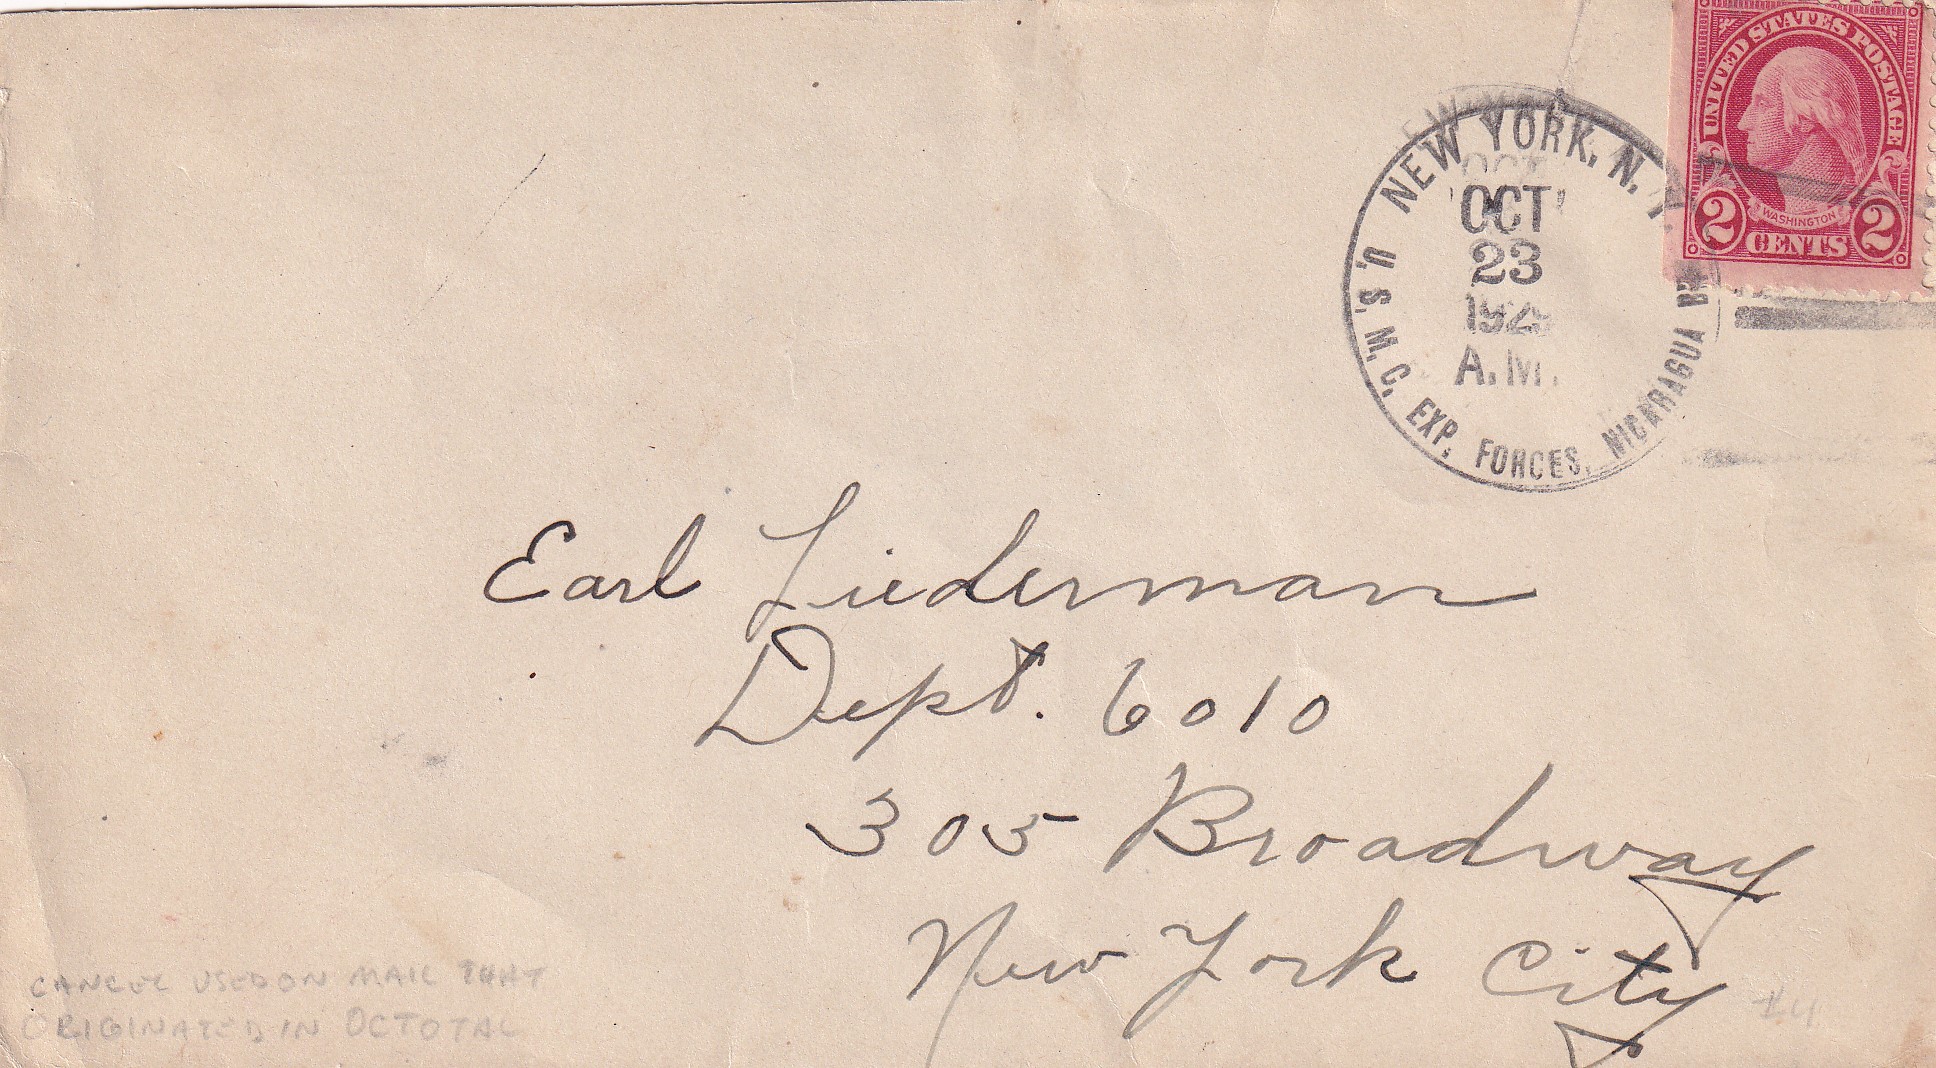 UNITED STATES POSTAGE
WASHINGTON
2 CENTS 2
NEW YORK, N. Y.
OCT
23
A.M.
U. S. M. C. EXP. FORCES, NICARAGUA
Earl Liederman
Dept. 6010
305 Broadway
New York City
CANCEL USED ON MAIL THAT
ORIGINATED IN OCTOTAL